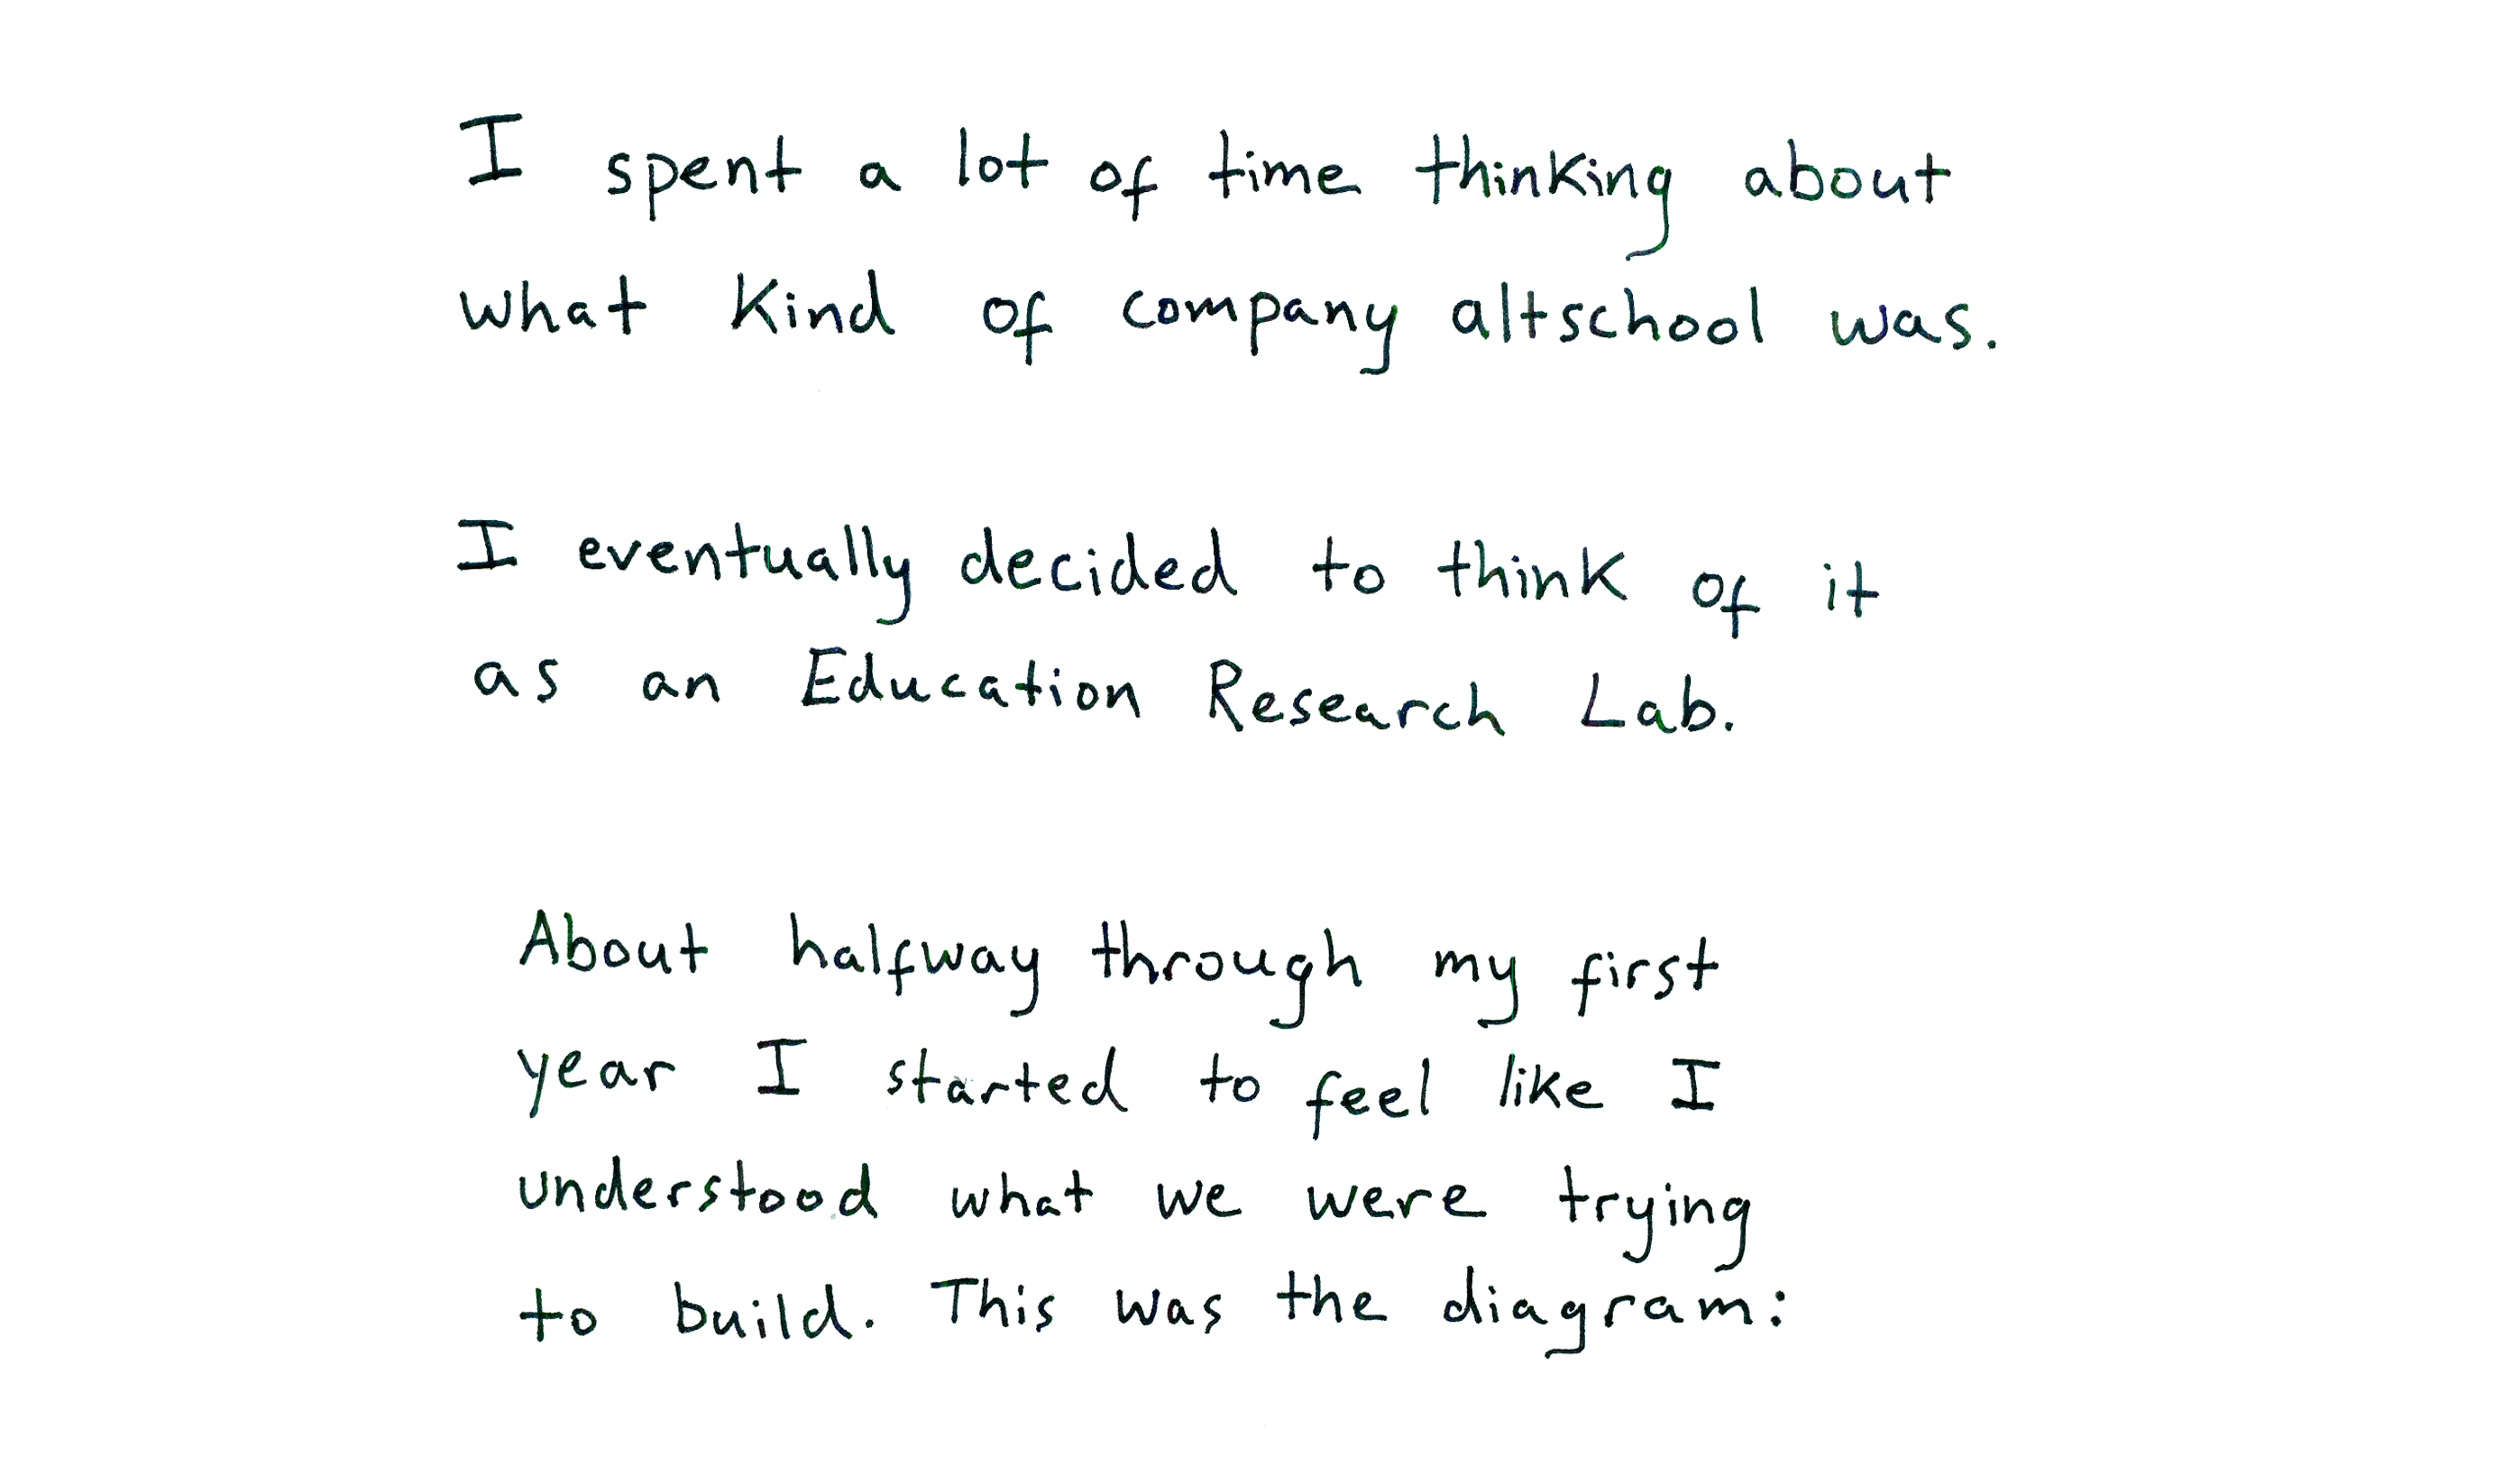 I spent a lot of time thinking about
what kind of company altschool was.
I eventually decided to think of it
as an Education Research Lab.
About halfway through my first
year I started to feel like I
understood what we were trying
to build. This was the diagram: